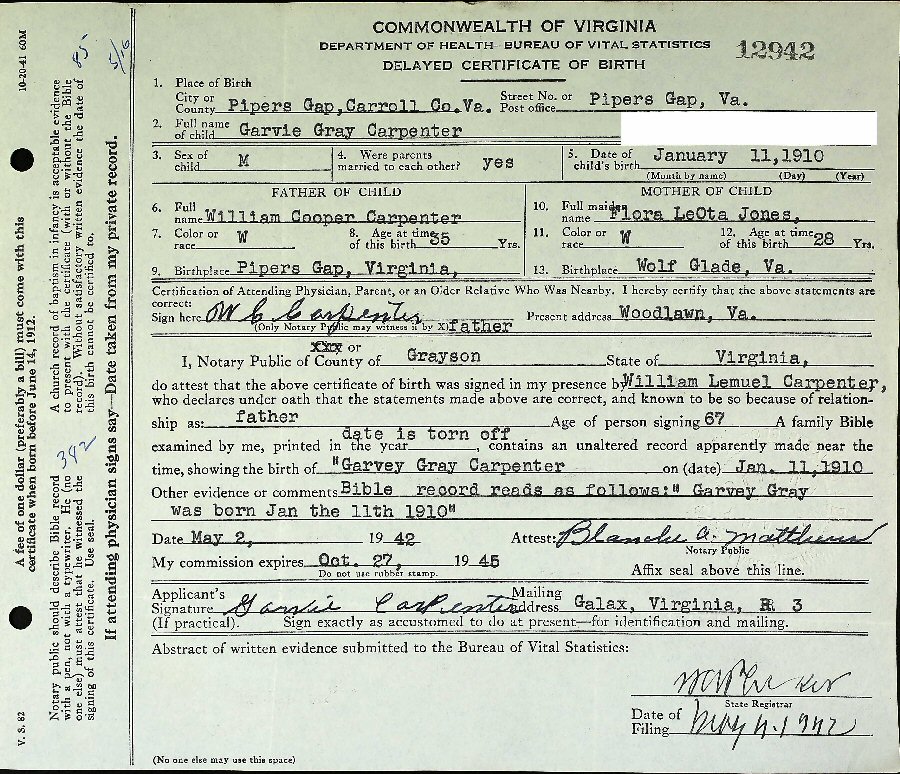 COMMONWEALTH OF VIRGINIA
DEPARTMENT OF HEALTH BUREAU OF VITAL STATISTICS
12942
DELAYED CERTIFICATE OF BIRTH
1. Place of Birth
City or County Pipers Gap, Carroll Co. Va. Street No. or Post office Pipers Gap, Va.
2. Full name of child Garvie Gray Carpenter
3. Sex of child M 4. Were parents married to each other? yes 5. Date of child's birth January 11, 1910
(Month by name) (Day) (Year)
FATHER OF CHILD
6. Full name William Cooper Carpenter
7. Color or race W 8. Age at time of this birth 35 Yrs.
9. Birthplace Pipers Gap, Virginia,
MOTHER OF CHILD
10. Full maiden name Flora LeOta Jones,
11. Color or race W 12. Age at time of this birth 28 Yrs.
13. Birthplace Wolf Glade, Va.
Certification of Attending Physician, Parent, or an Older Relative Who Was Nearby. I hereby certify that the above statements are
correct:
Sign here W C Carpenter Present address Woodlawn, Va.
(Only Notary Public may witness if by X) father
or
I, Notary Public of County of Grayson State of Virginia,
do attest that the above certificate of birth was signed in my presence by William Lemuel Carpenter,
who declares under oath that the statements made above are correct, and known to be so because of relation-
ship as: father Age of person signing 67 A family Bible
examined by me, printed in the year date is torn off, contains an unaltered record apparently made near the
time, showing the birth of "Garvey Gray Carpenter on (date) Jan. 11, 1910
Other evidence or comments Bible record reads as follows:" Garvey Gray
was born Jan the 11th 1910"
Date May 2, 1942 Attest: Blanche A. Matthews
Notary Public
My commission expires Oct. 27, 1945 Affix seal above this line.
Do not use rubber stamp.
Applicant's Signature Garvie Carpenter Mailing address Galax, Virginia, R 3
(If practical). Sign exactly as accustomed to do at present—for identification and mailing.
Abstract of written evidence submitted to the Bureau of Vital Statistics:
State Registrar
Date of Filing May 4 - 1942
(No one else may use this space)
V. S. 82
10-20-41 60M
A fee of one dollar (preferably a bill) must come with this
certificate when born before June 14, 1912.
Notary public should describe Bible record
with a pen, not with a typewriter. He (no
one else) must attest that he witnessed the
signing of this certificate. Use seal.
392
A church record of baptism in infancy is acceptable evidence
to present with the certificate (with or without the Bible
record). Without satisfactory written evidence the date of
this birth cannot be certified to.
85
5/16
If attending physician signs say—Date taken from my private record.